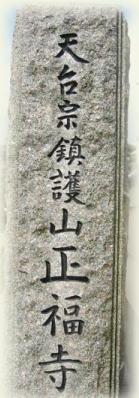 天台宗鎮護山正福寺